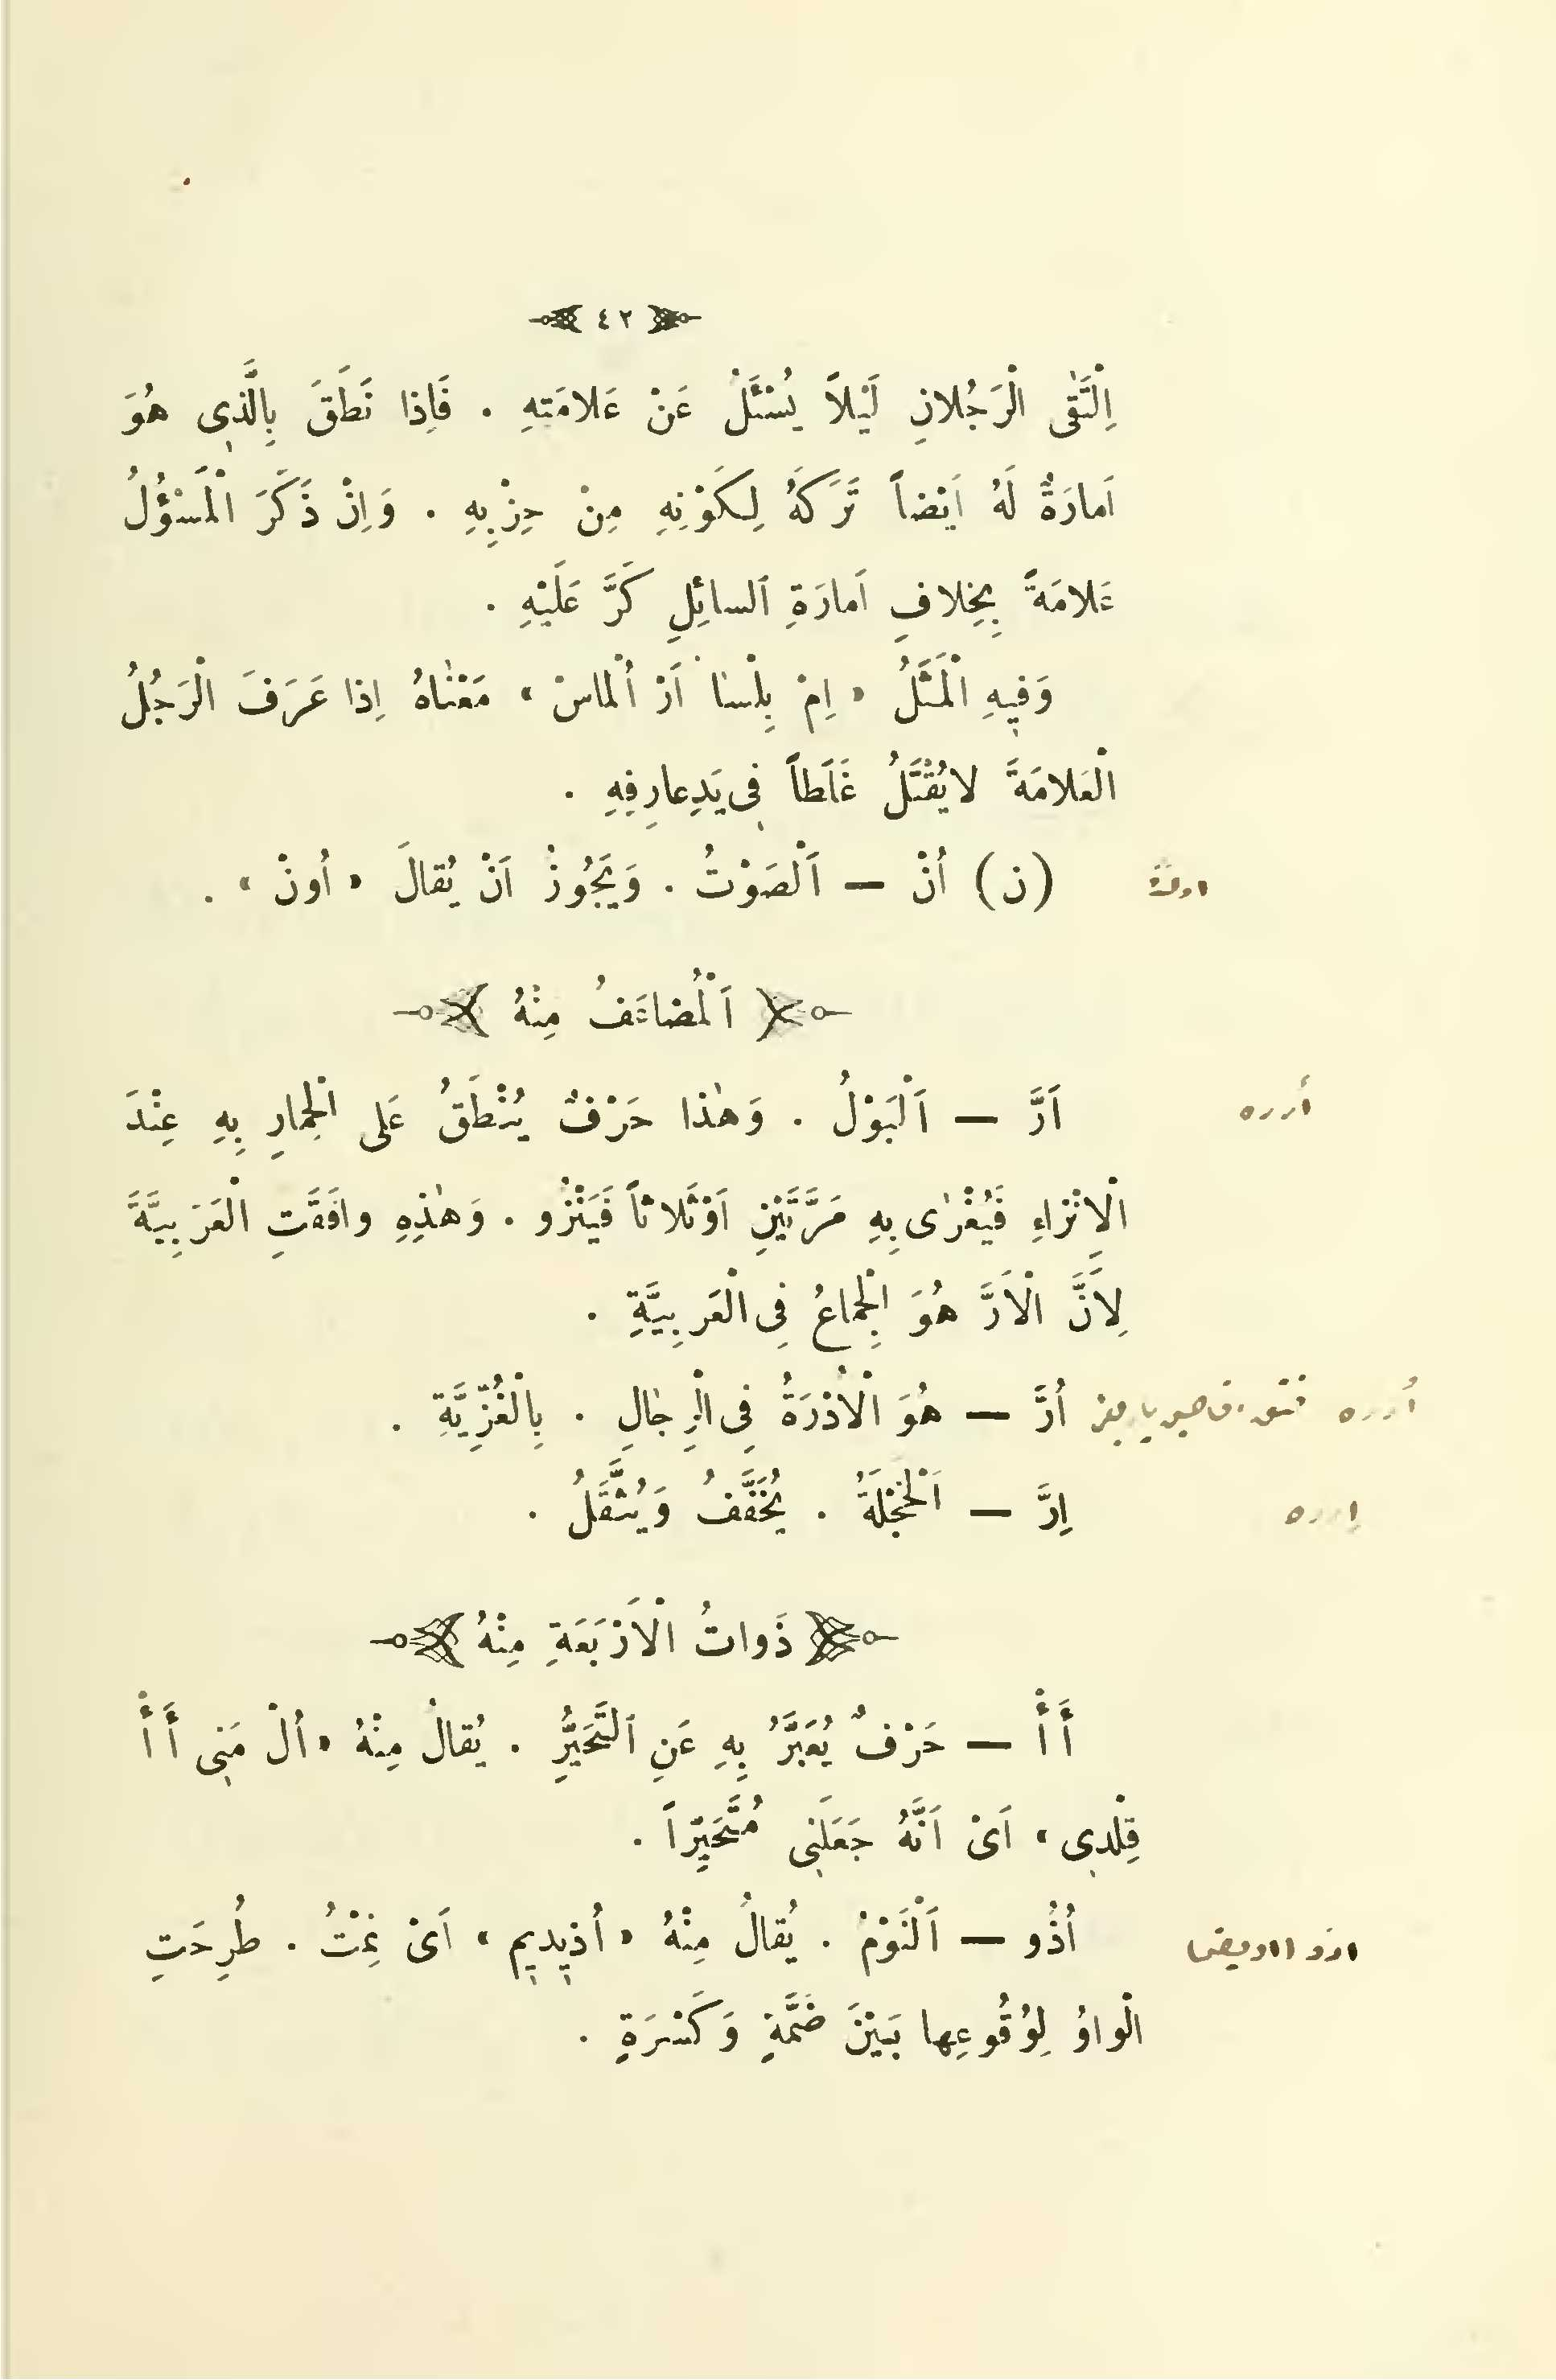 ٤٢
اِلْتَقٰى الْرَجُلانِ لَيْلاً يُسْئَلُ عَنْ عَلامَتِهِ . فَاِذا نَطَقَ بِالَّذِى هُوَ
اَمارَةٌ لَهُ اَيْضاً تَرَكَهُ لِكَوْنِهِ مِنْ حِزْبِهِ . وَاِنْ ذَكَرَ الْمَسْؤُلُ
عَلامَةً بِخِلافِ اَمارَةِ اَلسائِلِ كَرَّ عَلَيْهِ .
وَفِيهِ الْمَثَلُ « اِمْ بِلْسا اَرْ اُلْماسْ » مَعْناٰهُ اِذا عَرَفَ الْرَجُلُ
الْعَلامَةَ لايُقْتَلُ غَلَطاً فِى يَدِعارِفِهِ .
(ن) اُنْ — اَلْصَوْتُ . وَيَجُوزُ اَنْ يُقالَ « اُونْ » .
اَلْمُضاعَفُ مِنْهُ
اَرَّ — اَلْبَوْلُ . وَهٰذا حَرْفٌ يُنْطَقُ عَلى الْحِمارِ بِهِ عِنْدَ
الْاِنْزاءِ فَيُغْرٰى بِهِ مَرَّتَيْنِ اَوْثَلاثاً فَيَنْزُو . وَهٰذِهِ وافَقَتِ الْعَرَبِيَّةَ
لِاَنَّ الْاَرَّ هُوَ الْجِماعُ فِى الْعَرَبِيَّةِ .
اُرَّ — هُوَ الْاُدْرَةُ فِى الْرِجٰالِ . بِالْغُزِّيَّةِ .
اِرَّ — اَلْخَجْلَةُ . يُخَفَّفُ وَيُثَقَّلُ .
ذَواتُ الْاَرْبَعَةِ مِنْهُ
أَأْ — حَرْفٌ يُعَبَّرُ بِهِ عَنِ اَلتَّحَيُّرِ . يُقالُ مِنْهُ « اُلْ مَنِى أَأْ
قِلْدِى » اَىْ اَنَّهُ جَعَلَنِى مُتَحَيِّراً .
اُذُو — اَلْنَوْمُ . يُقالُ مِنْهُ « اُذِيدِيم » اَىْ نِمْتُ . طُرِحَتِ
الْواوُ لِوُقُوعِها بَيْنَ ضَمَّةٍ وَكَسْرَةٍ .